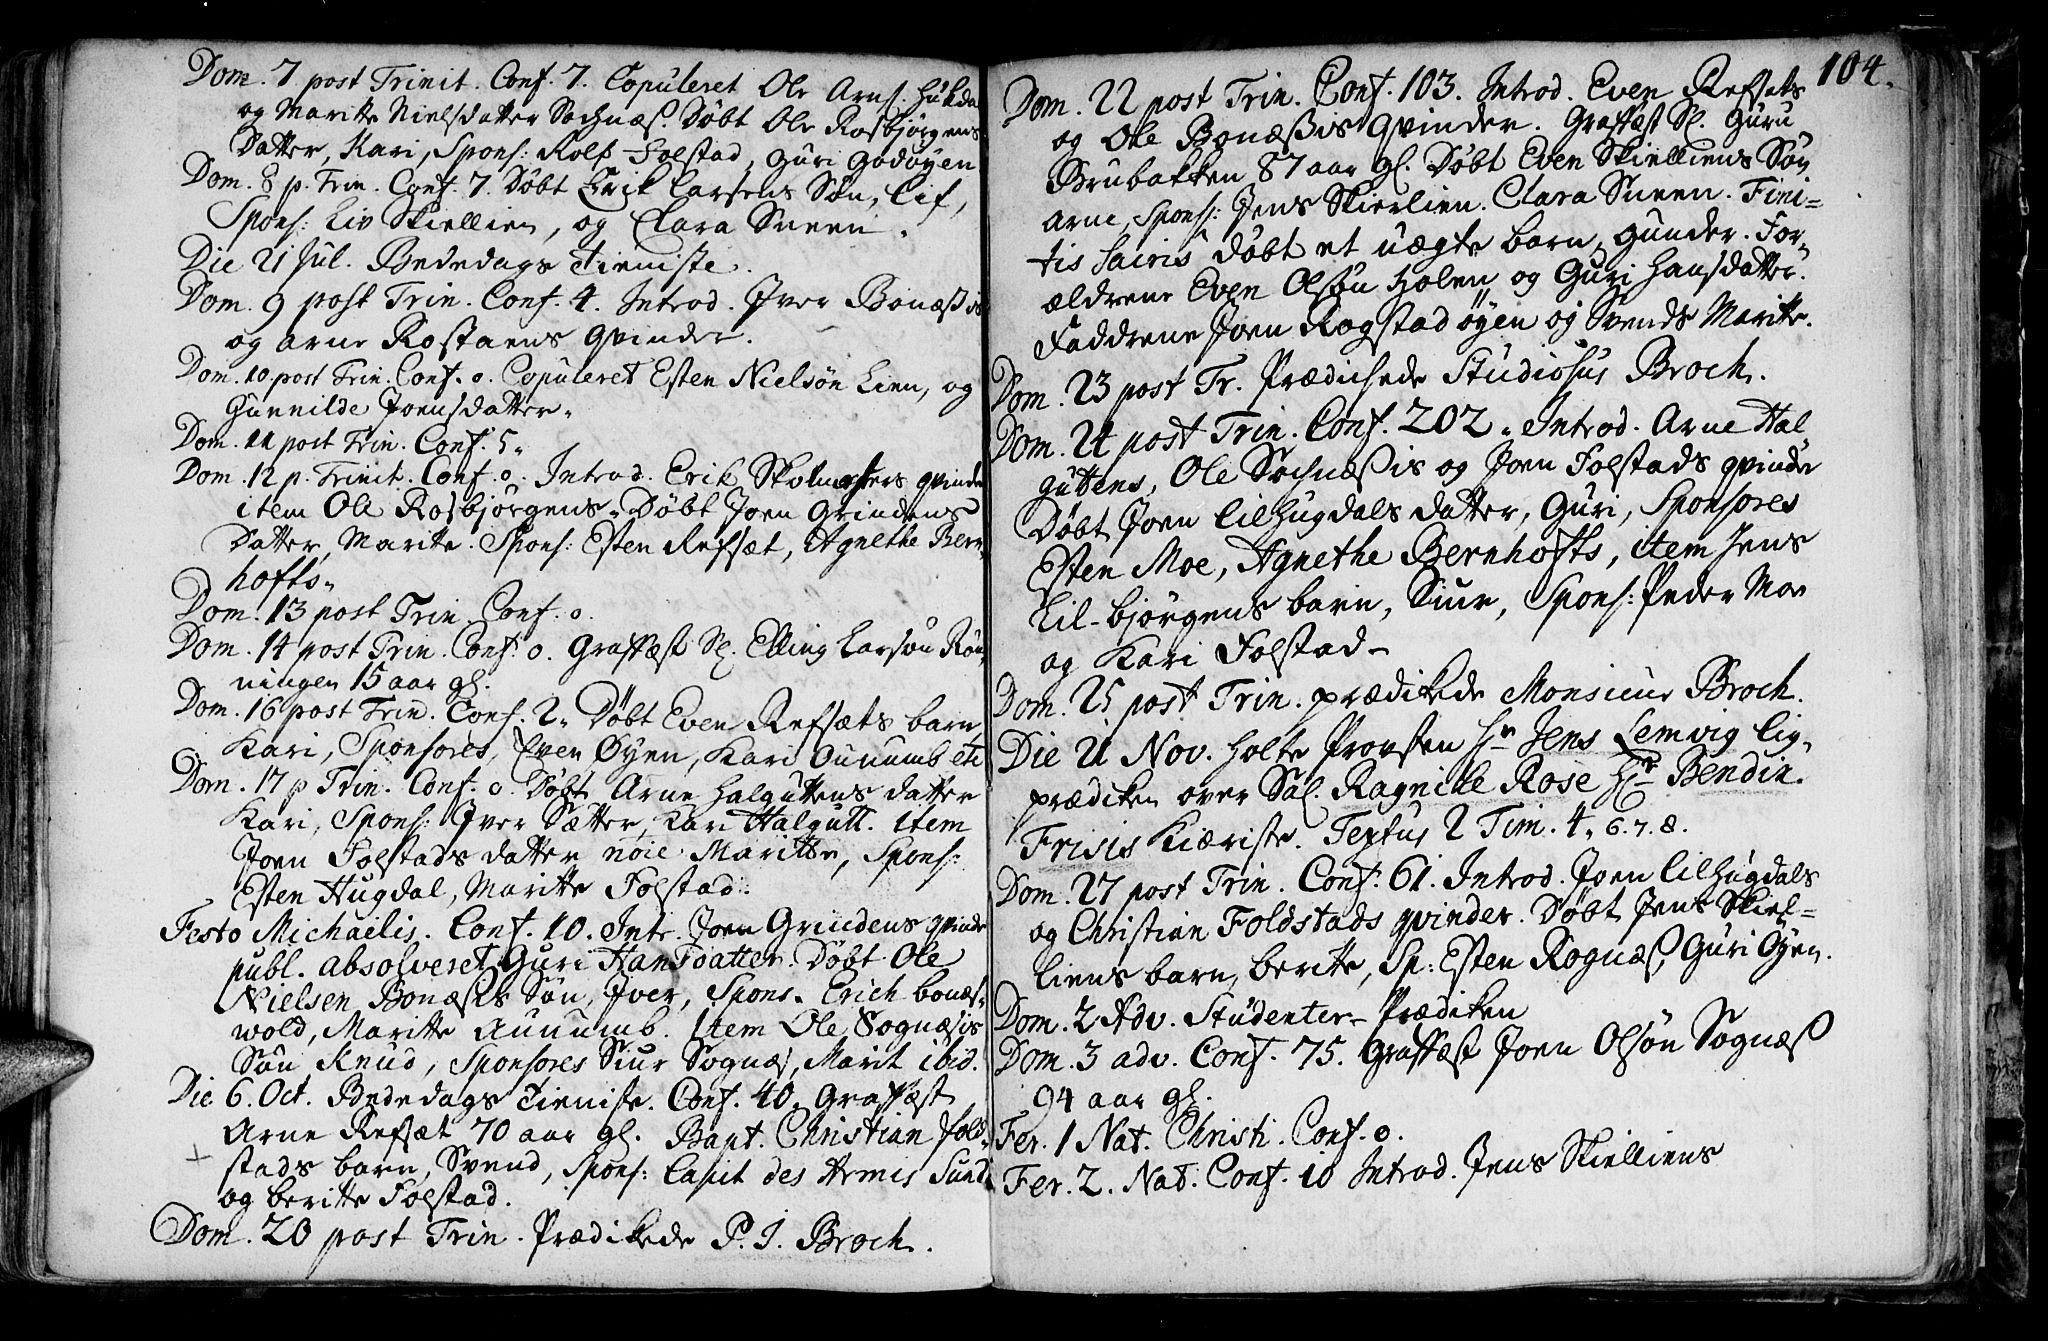 Dom. 7 post Trinit. Conf. 7. Copuleret Ole Arns: Hukda
og Maritte Nielsdatter Sochnæs. Døbt Ole Rosbjørgens
Datter, Kari, Spons: Rolf Folstad, Guri Godøyen
Dom. 8 p. Trin. Conf. 7. Døbt Erik Larsens Søn, Lif,
Spons: Liv Skiellien, og Clara Sneen.
Die 21 Jul. Bededags Tieniste.
Dom. 9 post Trin. Conf. 4. Introd. Iver Bonæssis
og Arne Rostaens qvinder.
Dom. 10 post Trin. Conf. 0. Copuleret Esten Nielsøn Lien, og
Gunnilde Joensdatter.
Dom. 11 post Trin. Conf. 5.
Dom. 12 p. Trinit. Conf. 0. Introd. Erik Skolmesters qvinde
item Ole Rosbjørgens. Døbt Joen Grindens
Datter, Marite. Spons: Esten Refsæt, Agnethe Bern-
hofts.
Dom. 13 post Trin. Conf. 0.
Dom. 14 post Trin. Conf. 0. Graffæst Sl. Elling Larsøn Røn-
ningen 15 aar gl.
Dom. 16 post Trin. Conf. 2. Døbt Even Refsæts barn
Kari, Sponsores, Even Øyen, Kari Ounumb etc
Dom. 17 p Trin. Conf. 0. Døbt Arne Halguttens datter
Kari, Spons: Iver Sætter, Kari Halgutt. item
Joen Folstads datter noie Maritte, Spons:
Esten Hugdal, Maritte Folstad.
Festo Michaelis. Conf. 10. Intr. Joen Grindens qvinde
publ. absolveret Guri Hansdatter. Døbt Ole
Nielsen Bonæses Søn, Iver, Spons. Erich bonæs-
wold, Maritte Auuumb. Item Ole Sognæsis
Søn Knud, Sponsores Siur Sognæs, Marit ibid.
Die 6. Oct. Bededags Tieniste. Conf. 40. Graffæst
Arne Refsæt 70 aar gl. Bapt. Christian fold-
stads barn, Svend, Spons: Capit des Armis Sund
og beritte Folstad.
Dom. 20 post Trin. Prædikede P. J. Broch.
104.
Dom. 22 post Trin. Conf. 103. Introd. Even Refsets
og Ole Bonæssis qvinder. Graffæst Sl. Guru
Brubakken 87 aar gl. Døbt Even Skielliens Søn
Arne, Spons: Jens Skierlien. Clara Sneen. Fini-
tis Sacris døbt et uægte barn, Gunder. For-
ældrene Even Olsøn Holen, og Guri Hansdatter.
Faddrene Joen Rogstadøyen og Svends Maritte.
Dom. 23 post Tr. Prædichede Studiosus Broch.
Dom. 24 post Trin. Conf. 202. Introd. Arne Hal
guttens, Ole Sochnæssis og Joen Folstads qvinder
Døbt Joen Lilhugdals datter, Guri, Sponsores
Esten Moe, Agnethe Bernhofts, item Jens
Lil-bjørgens barn, Siur, Spons: Peder Moe
og Kari Folstad-
Dom. 25 post Trin. prædikede Monsieur Broch.
Die 21 Nov. holte Provsten Hr Jens Lemvig lig-
prædiken over Sal. Ragnille Rose Hr Bendix.
Frisis Kiæriste. Textus 2 Tim. 4. 6. 7. 8.
Dom. 27 post Trin. Conf. 61. Introd. Joen Lilhugdals
og Christian Foldstads qvinder. Døbt Jens Skiel-
liens barn, beritte, Sp: Esten Rognæs, Guri Øyen.
Dom. 2 Adv. Studenter-Prædiken
Dom. 3 adv. Conf. 75. Graffæst Joen Olsøn Sognæss
94 aar gl.
Fer. 1 Nat. Christi. Conf. 0.
Fer. 2. Nat. Conf. 10 Introd. Jens Skielliens